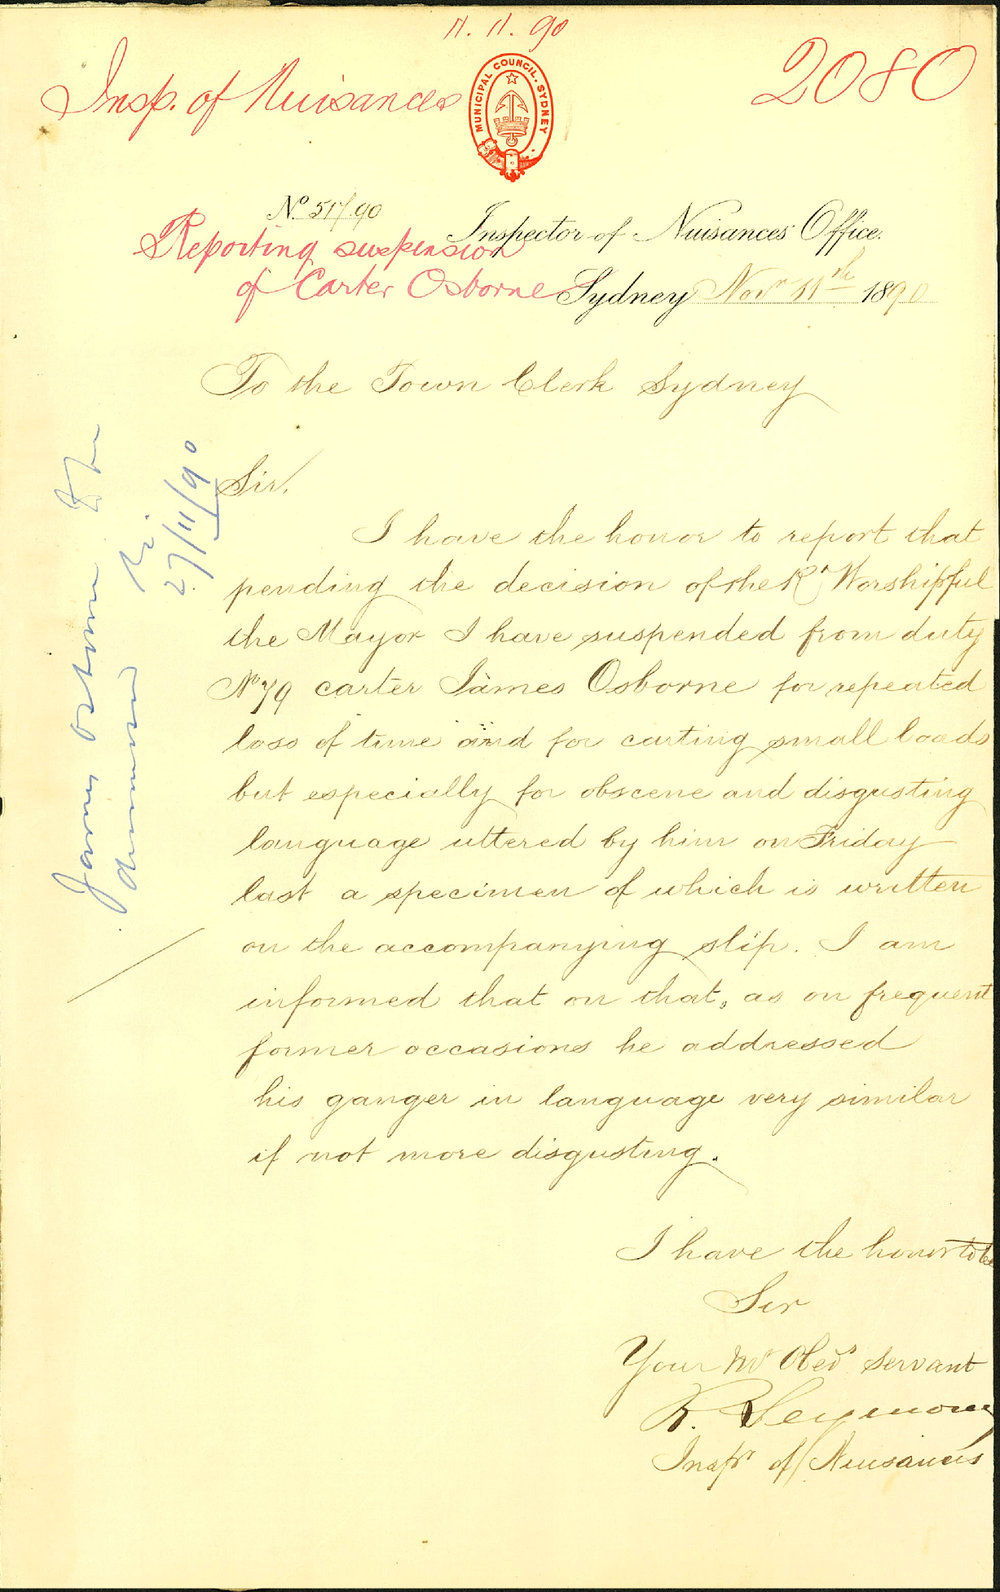 11. 11. 90
Insp. of Nuisances
MUNICIPAL COUNCIL. SYDNEY
2080
No. 517/90
Inspector of Nuisances Office.
Reporting suspension
of Carter Osborne
Sydney Novr 11th 1890
To the Town Clerk Sydney
Sir,
I have the honor to report that
pending the decision of the Rt Worshipful
the Mayor I have suspended from duty
No 79 carter James Osborne for repeated
loss of time and for carting small loads
but especially for obscene and disgusting
language uttered by him on Friday
last a specimen of which is written
on the accompanying slip. I am
informed that on that, as on frequent
former occasions he addressed
his ganger in language very similar
if not more disgusting.
I have the honor to be
Sir
Your Mt Obedt servant
R. Seymour
Inspr of Nuisances
James Osborne to be
dismissed
27/11/90